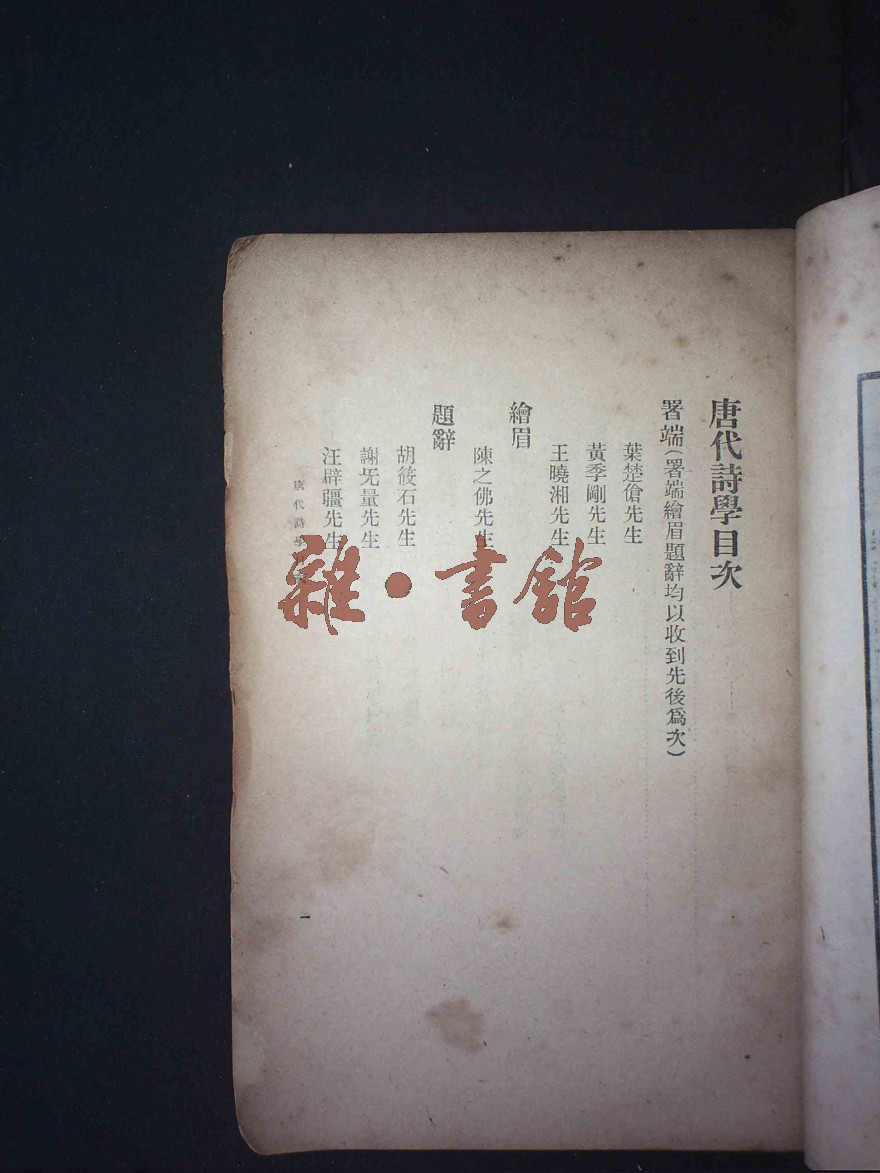 唐代詩學目次
署端（署端繪眉題辭均以收到先後爲次）
葉楚傖先生
黃季剛先生
王曉湘先生
繪眉
陳之佛先生
題辭
胡筱石先生
謝旡量先生
汪辟疆先生
唐代詩學
一
雜·書舘